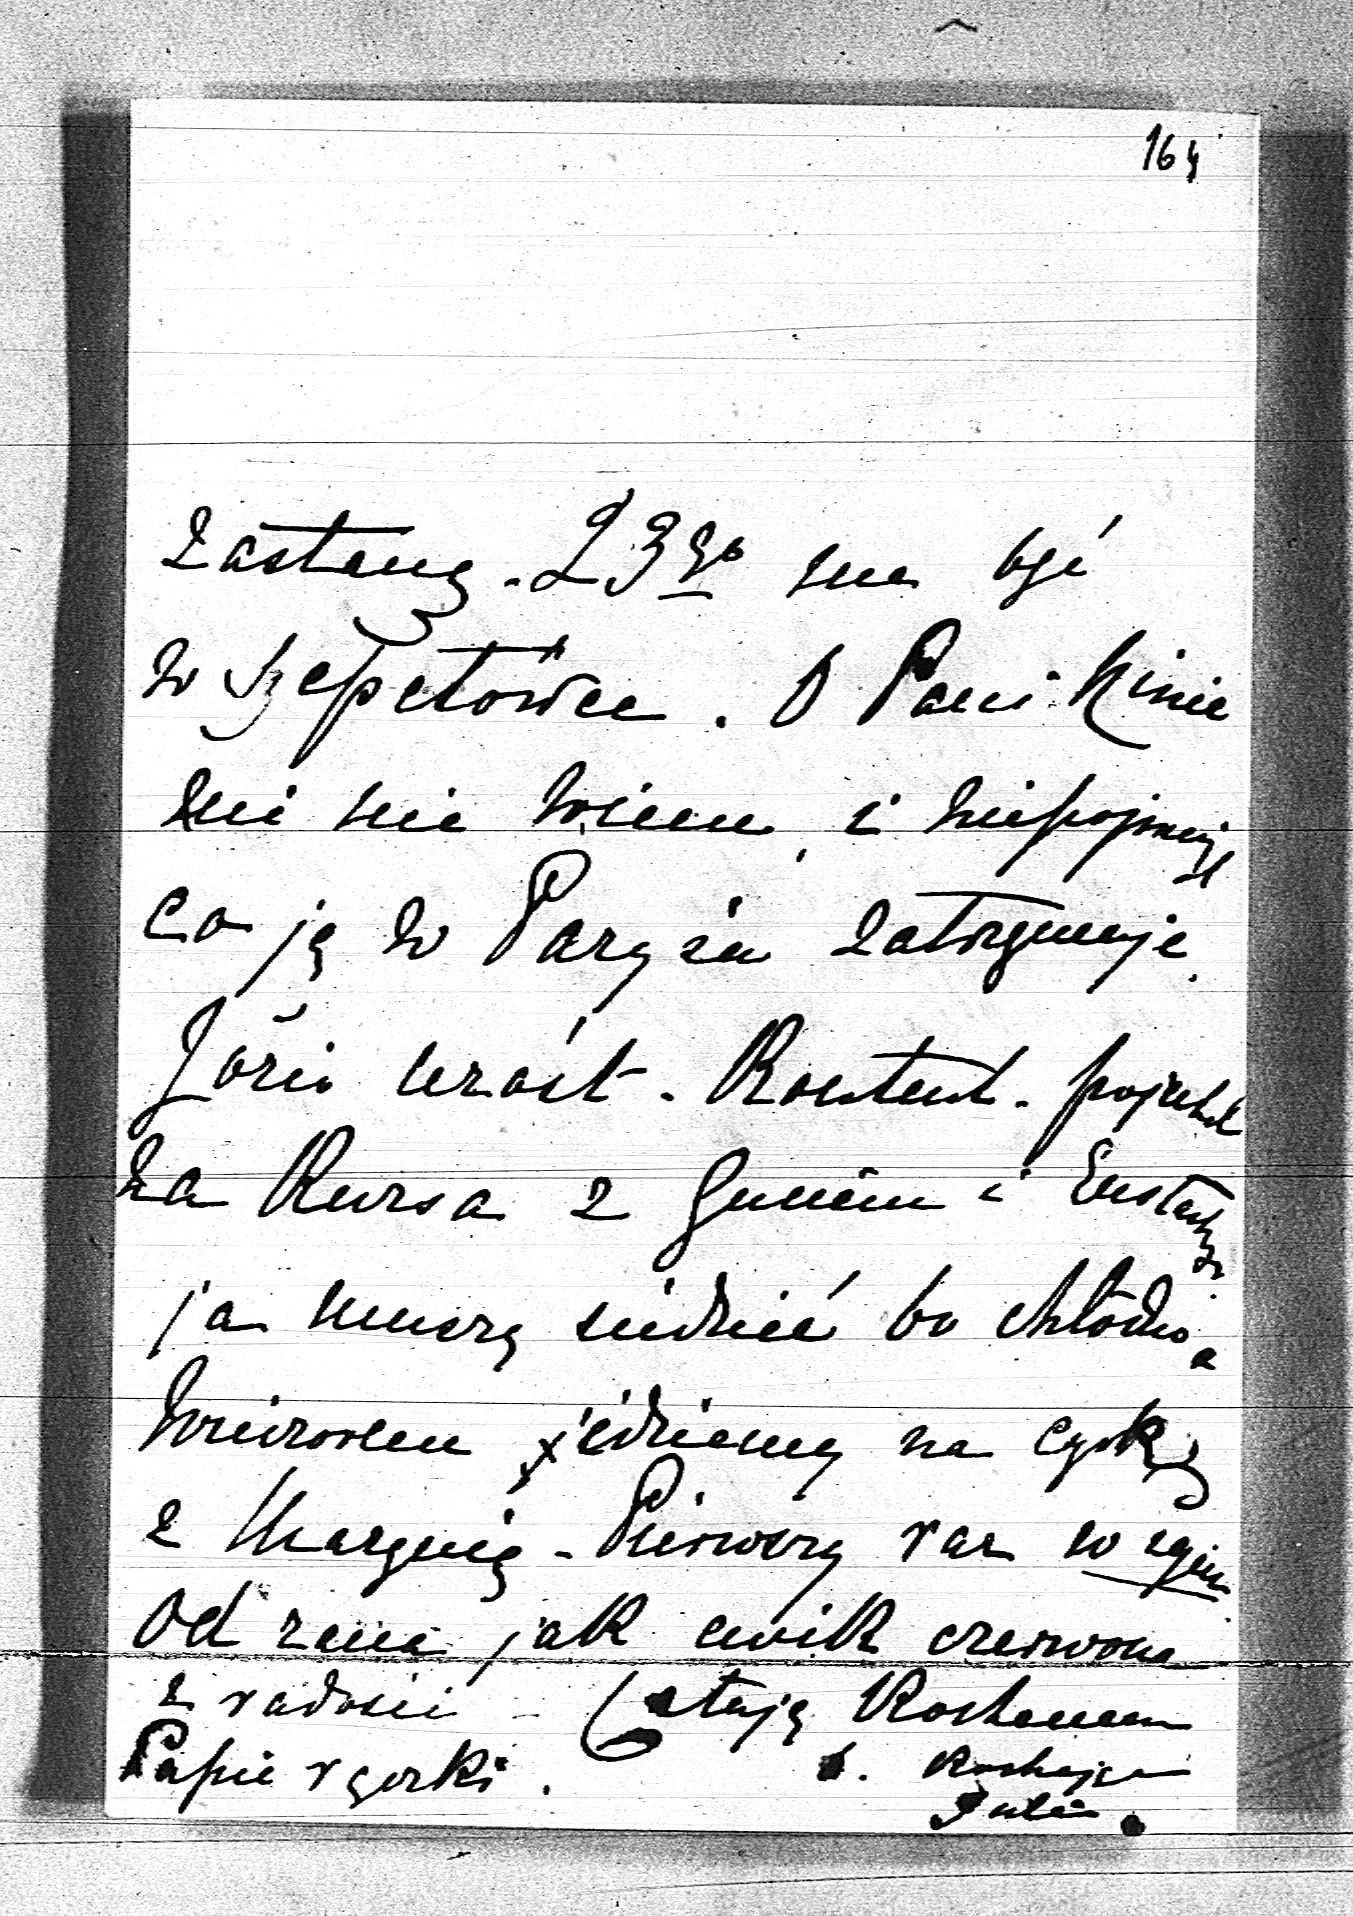 164
zastanę. 23go ma być
w Szepetówce. O Pani Kinie
nic nie wiem, i niepojmuję
co ją w Paryżu zatrzymuje.
Józio urósł. Konstent. pojechał
za Kursa z Guciem i Eustach
ja muszę siedzieć bo chłodno a
wieczorem jedziemy na
z Marynią - Pierwszy raz w życiu
od rana jak ćwik czerwona
z radości - Całuję Kochanem
Papie rączki. b. Kochająca
Julia.